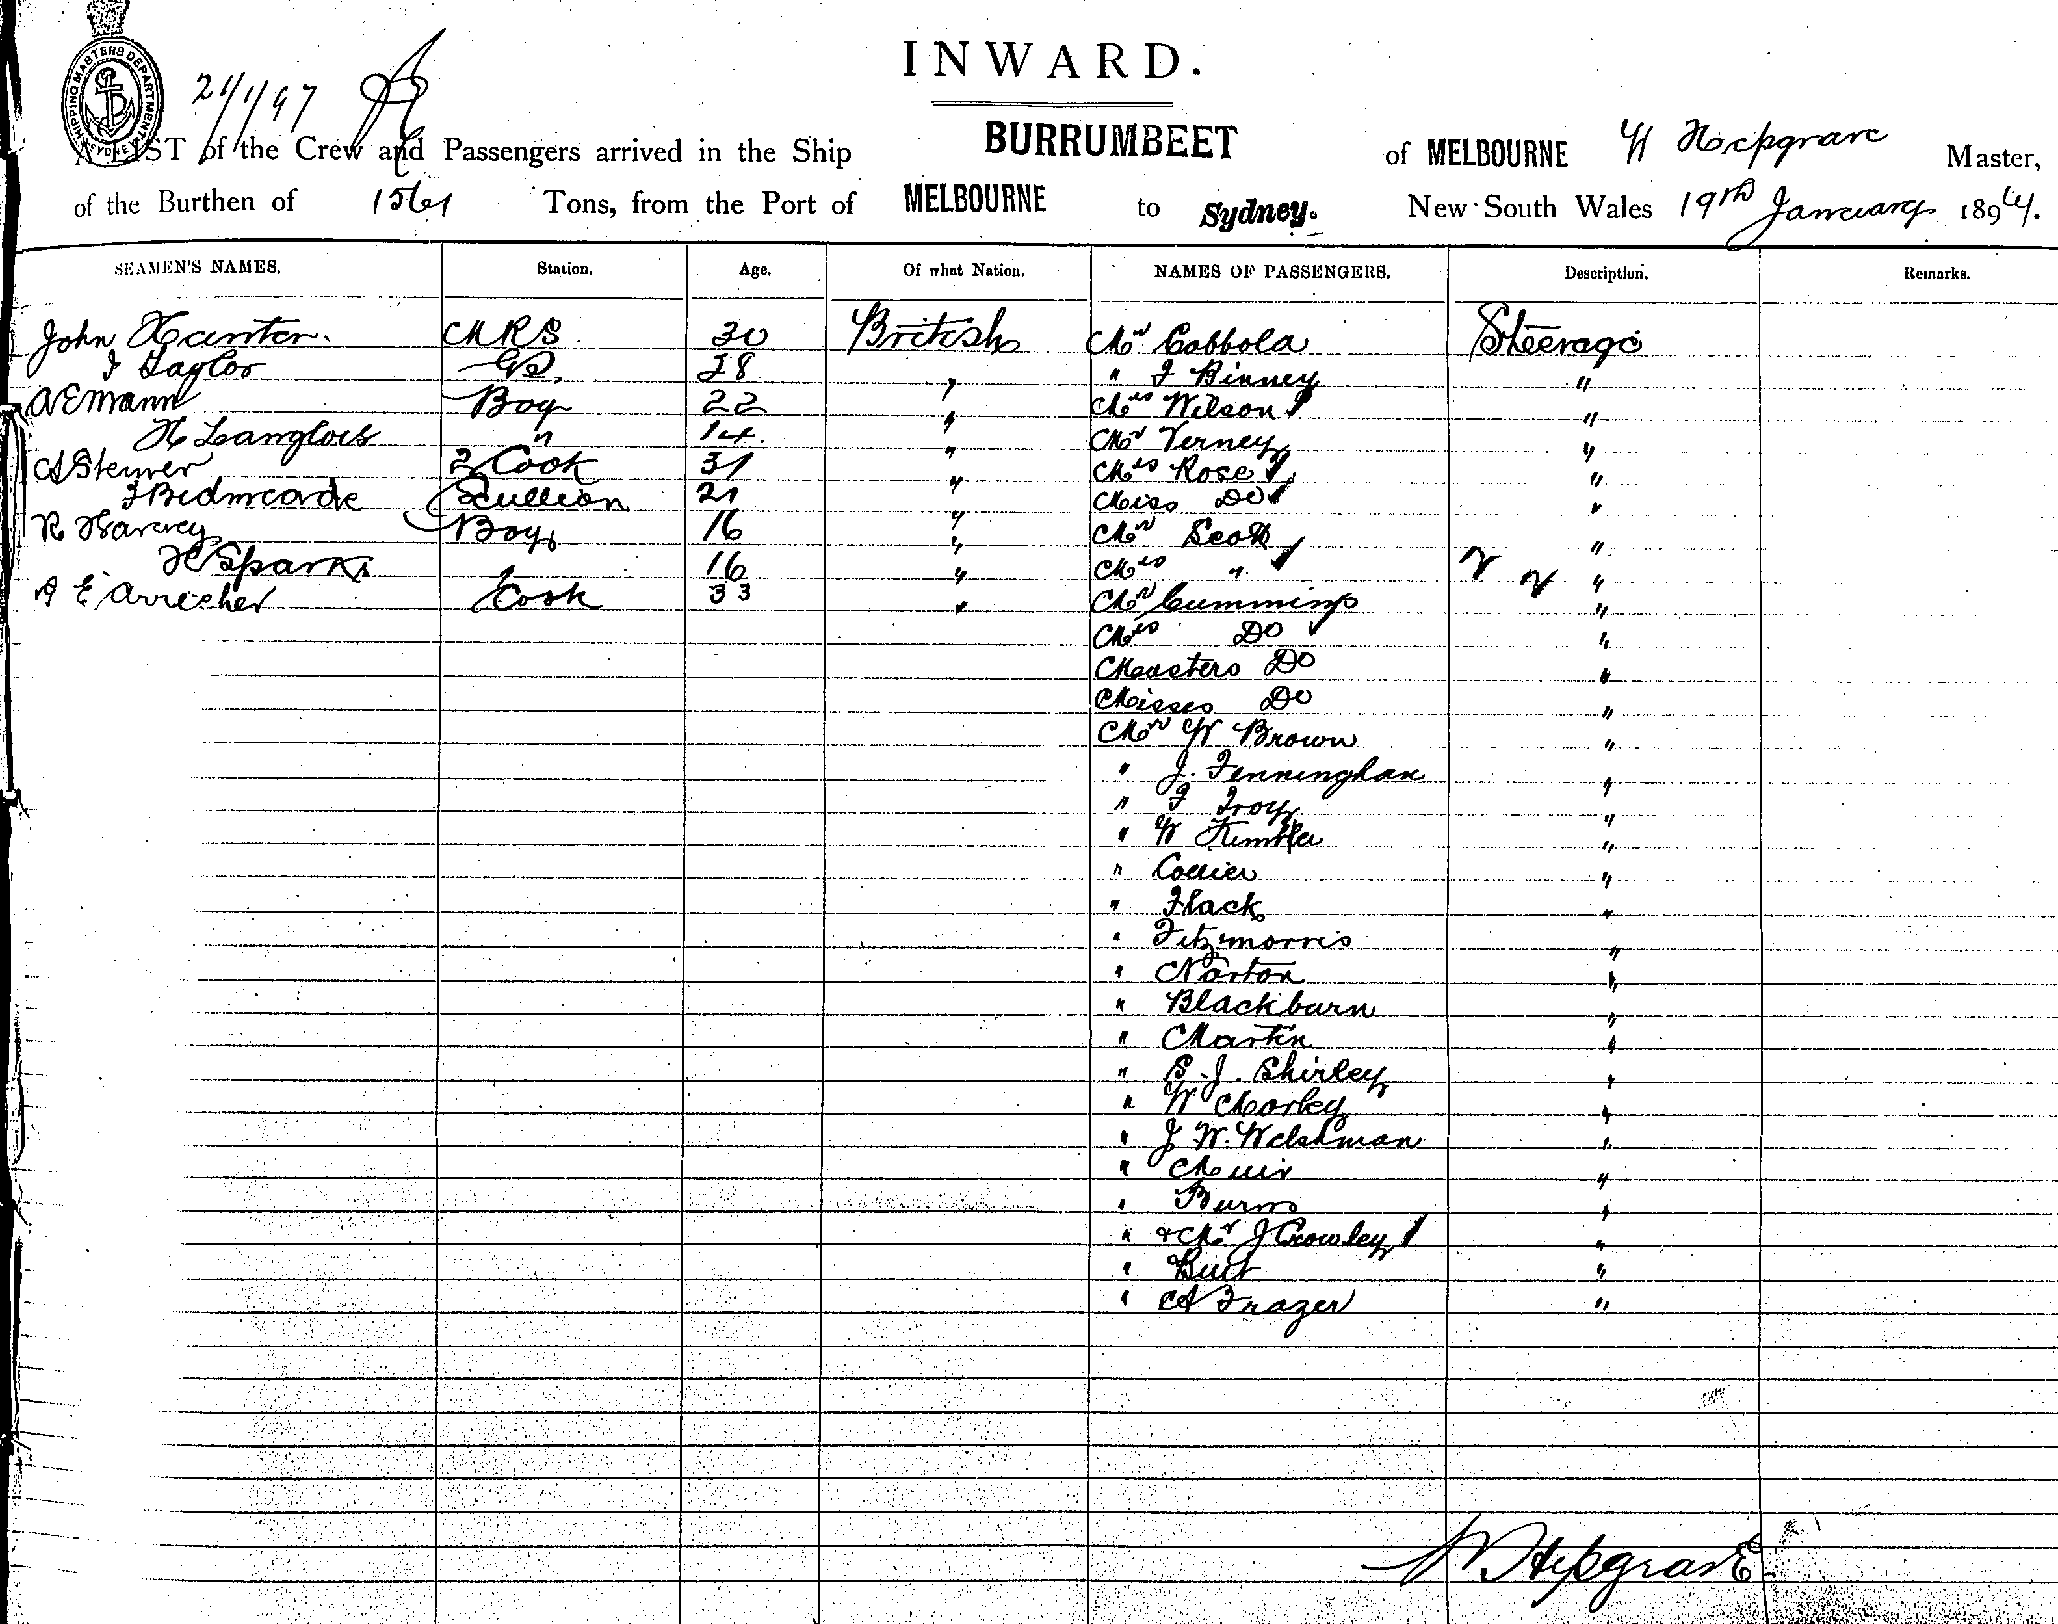 SHIPPING MASTERS DEPARTMENT SYDNEY
21/1/97
INWARD.
A LIST of the Crew and Passengers arrived in the Ship BURRUMBEET of MELBOURNE W Hepgrave Master,
of the Burthen of Tons, from the Port of MELBOURNE to Sydney. New South Wales 19th January 1894.
SEAMEN'S NAMES. Station. Age. Of what Nation. NAMES OF PASSENGERS. Description. Remarks.
John Hunter. 30 British Mr Cobbola Steerage
Taylor 38 " " Binney "
A E Mann Boy 22 " Mrs Wilson "
H Langlois " 14. " Mr Verney "
A Steiner 2 Cook 31 " Mrs Rose "
Scullion 21 " Miss Do "
R Harvey Boy 16 " Mr Scott "
H Sparks " 16 " Mrs " "
A E Cook 33 " Mr Cummings "
Mrs Do "
Masters Do "
Misses Do "
Mr W Brown "
" J. Fenninghan "
" Troy "
" W "
" Collier "
" Flack "
" Fitzmorris "
" Norton "
" Blackburn "
" Martin "
" S. J. Shirley "
" W Morley "
" J W. Welshman "
" Muir "
" Burns "
" & Mrs J Crowley "
" "
" A Frazer "
W Hepgrave